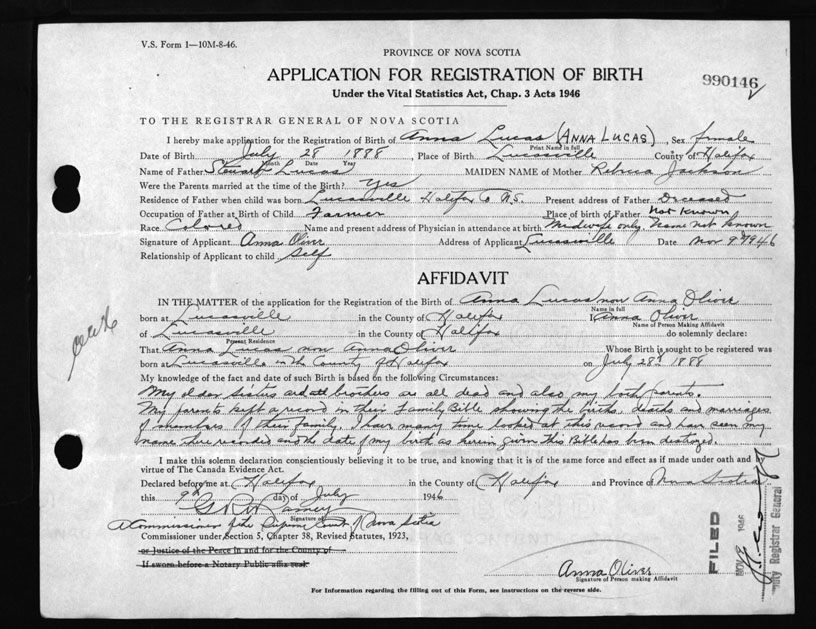 V.S. Form 1—10M-8-46.
PROVINCE OF NOVA SCOTIA
APPLICATION FOR REGISTRATION OF BIRTH
990146
Under the Vital Statistics Act, Chap. 3 Acts 1946
TO THE REGISTRAR GENERAL OF NOVA SCOTIA
I hereby make application for the Registration of Birth of Anna Lucas (ANNA LUCAS), Sex female
Print Name in full
Date of Birth July 28 1888, Place of Birth Lucasville County of Halifax
Month Date Year
Name of Father Stewart Lucas MAIDEN NAME of Mother Rebecca Jackson
Were the Parents married at the time of the Birth? Yes
Residence of Father when child was born Lucasville Halifax Co N.S. Present address of Father Deceased
Occupation of Father at Birth of Child Farmer Place of birth of Father Not Known
Race Colored Name and present address of Physician in attendance at birth Midwife only. Name not known
Signature of Applicant Anna Oliver Address of Applicant Lucasville Date Nov 9 1946
Relationship of Applicant to child Self
AFFIDAVIT
IN THE MATTER of the application for the Registration of the Birth of Anna Lucas now Anna Oliver
Name in full
born at Lucasville in the County of Halifax I Anna Oliver
Name of Person Making Affidavit
of Lucasville in the County of Halifax do solemnly declare:
Present Residence
That Anna Lucas now Anna Oliver Whose Birth is sought to be registered was
born at Lucasville in the County of Halifax on July 28th 1888
My knowledge of the fact and date of such Birth is based on the following Circumstances:
My elder sisters and brothers are all dead and also my both parents.
My parents kept a record in their Family Bible showing the births, deaths and marriages
of members of their family. I have many time looked at this record and have seen my
name there recorded and the date of my birth as herein given This Bible has been destroyed.
I make this solemn declaration conscientiously believing it to be true, and knowing that it is of the same force and effect as if made under oath and by
virtue of The Canada Evidence Act.
Declared before me at Halifax in the County of Halifax and Province of Nova Scotia
this 9th day of July 1946
Signature of
A Commissioner of the Supreme Court of Nova Scotia
Commissioner under Section 5, Chapter 38, Revised Statutes, 1923,
or Justice of the Peace in and for the County of
If sworn before a Notary Public affix seal
FILED
NOV 1946
Deputy Registrar General
Anna Oliver
Signature of Person making Affidavit
For Information regarding the filling out of this Form, see instructions on the reverse side.